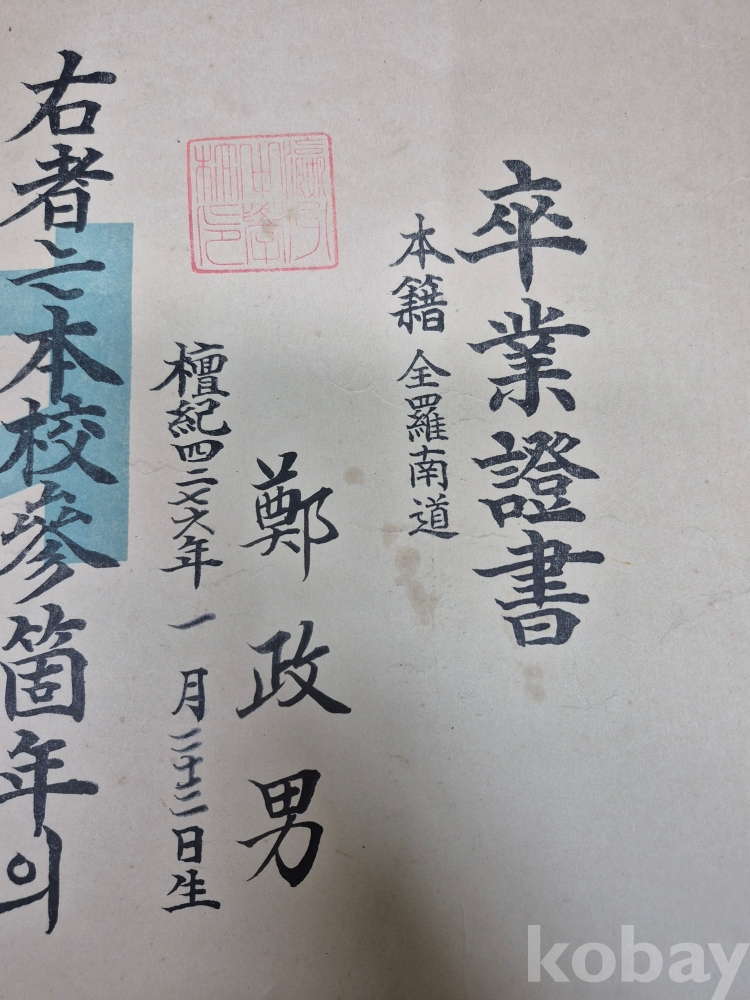 卒業證書
本籍 全羅南道
鄭政男
檀紀四二七六年 一月二十二日生
右者는本校參箇年의
kobay